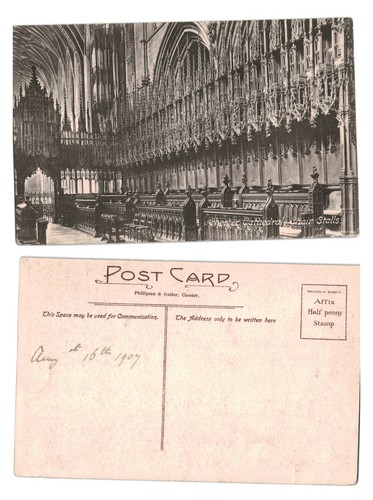 Chester Cathedral, Choir Stalls.
POST CARD.
Phillipson & Golder, Chester.
This Space may be used for Communication.
The Address only to be written here
Affix
Half penny
Stamp
16th 1907